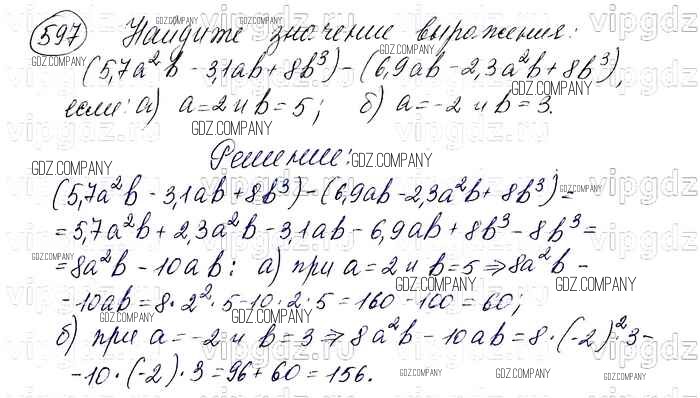 597 Найдите значение выражения:
(5,7a²b - 3,1ab + 8b³) - (6,9ab - 2,3a²b + 8b³),
если: а) a = 2 и b = 5; б) a = -2 и b = 3.
Решение:
(5,7a²b - 3,1ab + 8b³) - (6,9ab - 2,3a²b + 8b³) =
= 5,7a²b + 2,3a²b - 3,1ab - 6,9ab + 8b³ - 8b³ =
= 8a²b - 10ab: а) при a = 2 и b = 5 ⇒ 8a²b -
- 10ab = 8 · 2² · 5 - 10 · 2 · 5 = 160 - 100 = 60;
б) при a = -2 и b = 3 ⇒ 8a²b - 10ab = 8 · (-2)² · 3 -
- 10 · (-2) · 3 = 96 + 60 = 156.
GDZ.COMPANY
vipgdz.ru